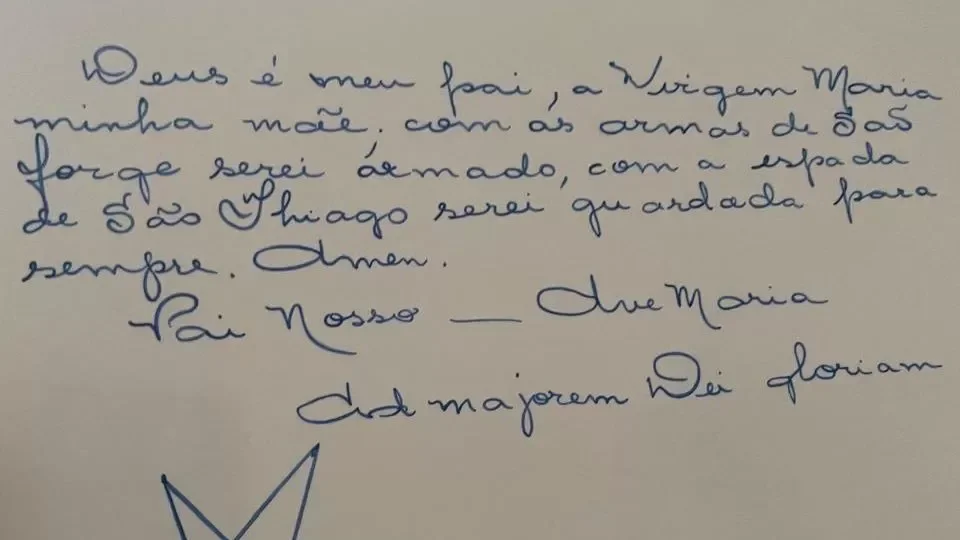 Deus é meu pai, a Virgem Maria
minha mãe. com as armas de São
Jorge serei ármado, com a espada
de São Thiago serei guardada para
sempre. Amen.
Pai Nosso — Ave Maria
Ad majorem Dei gloriam